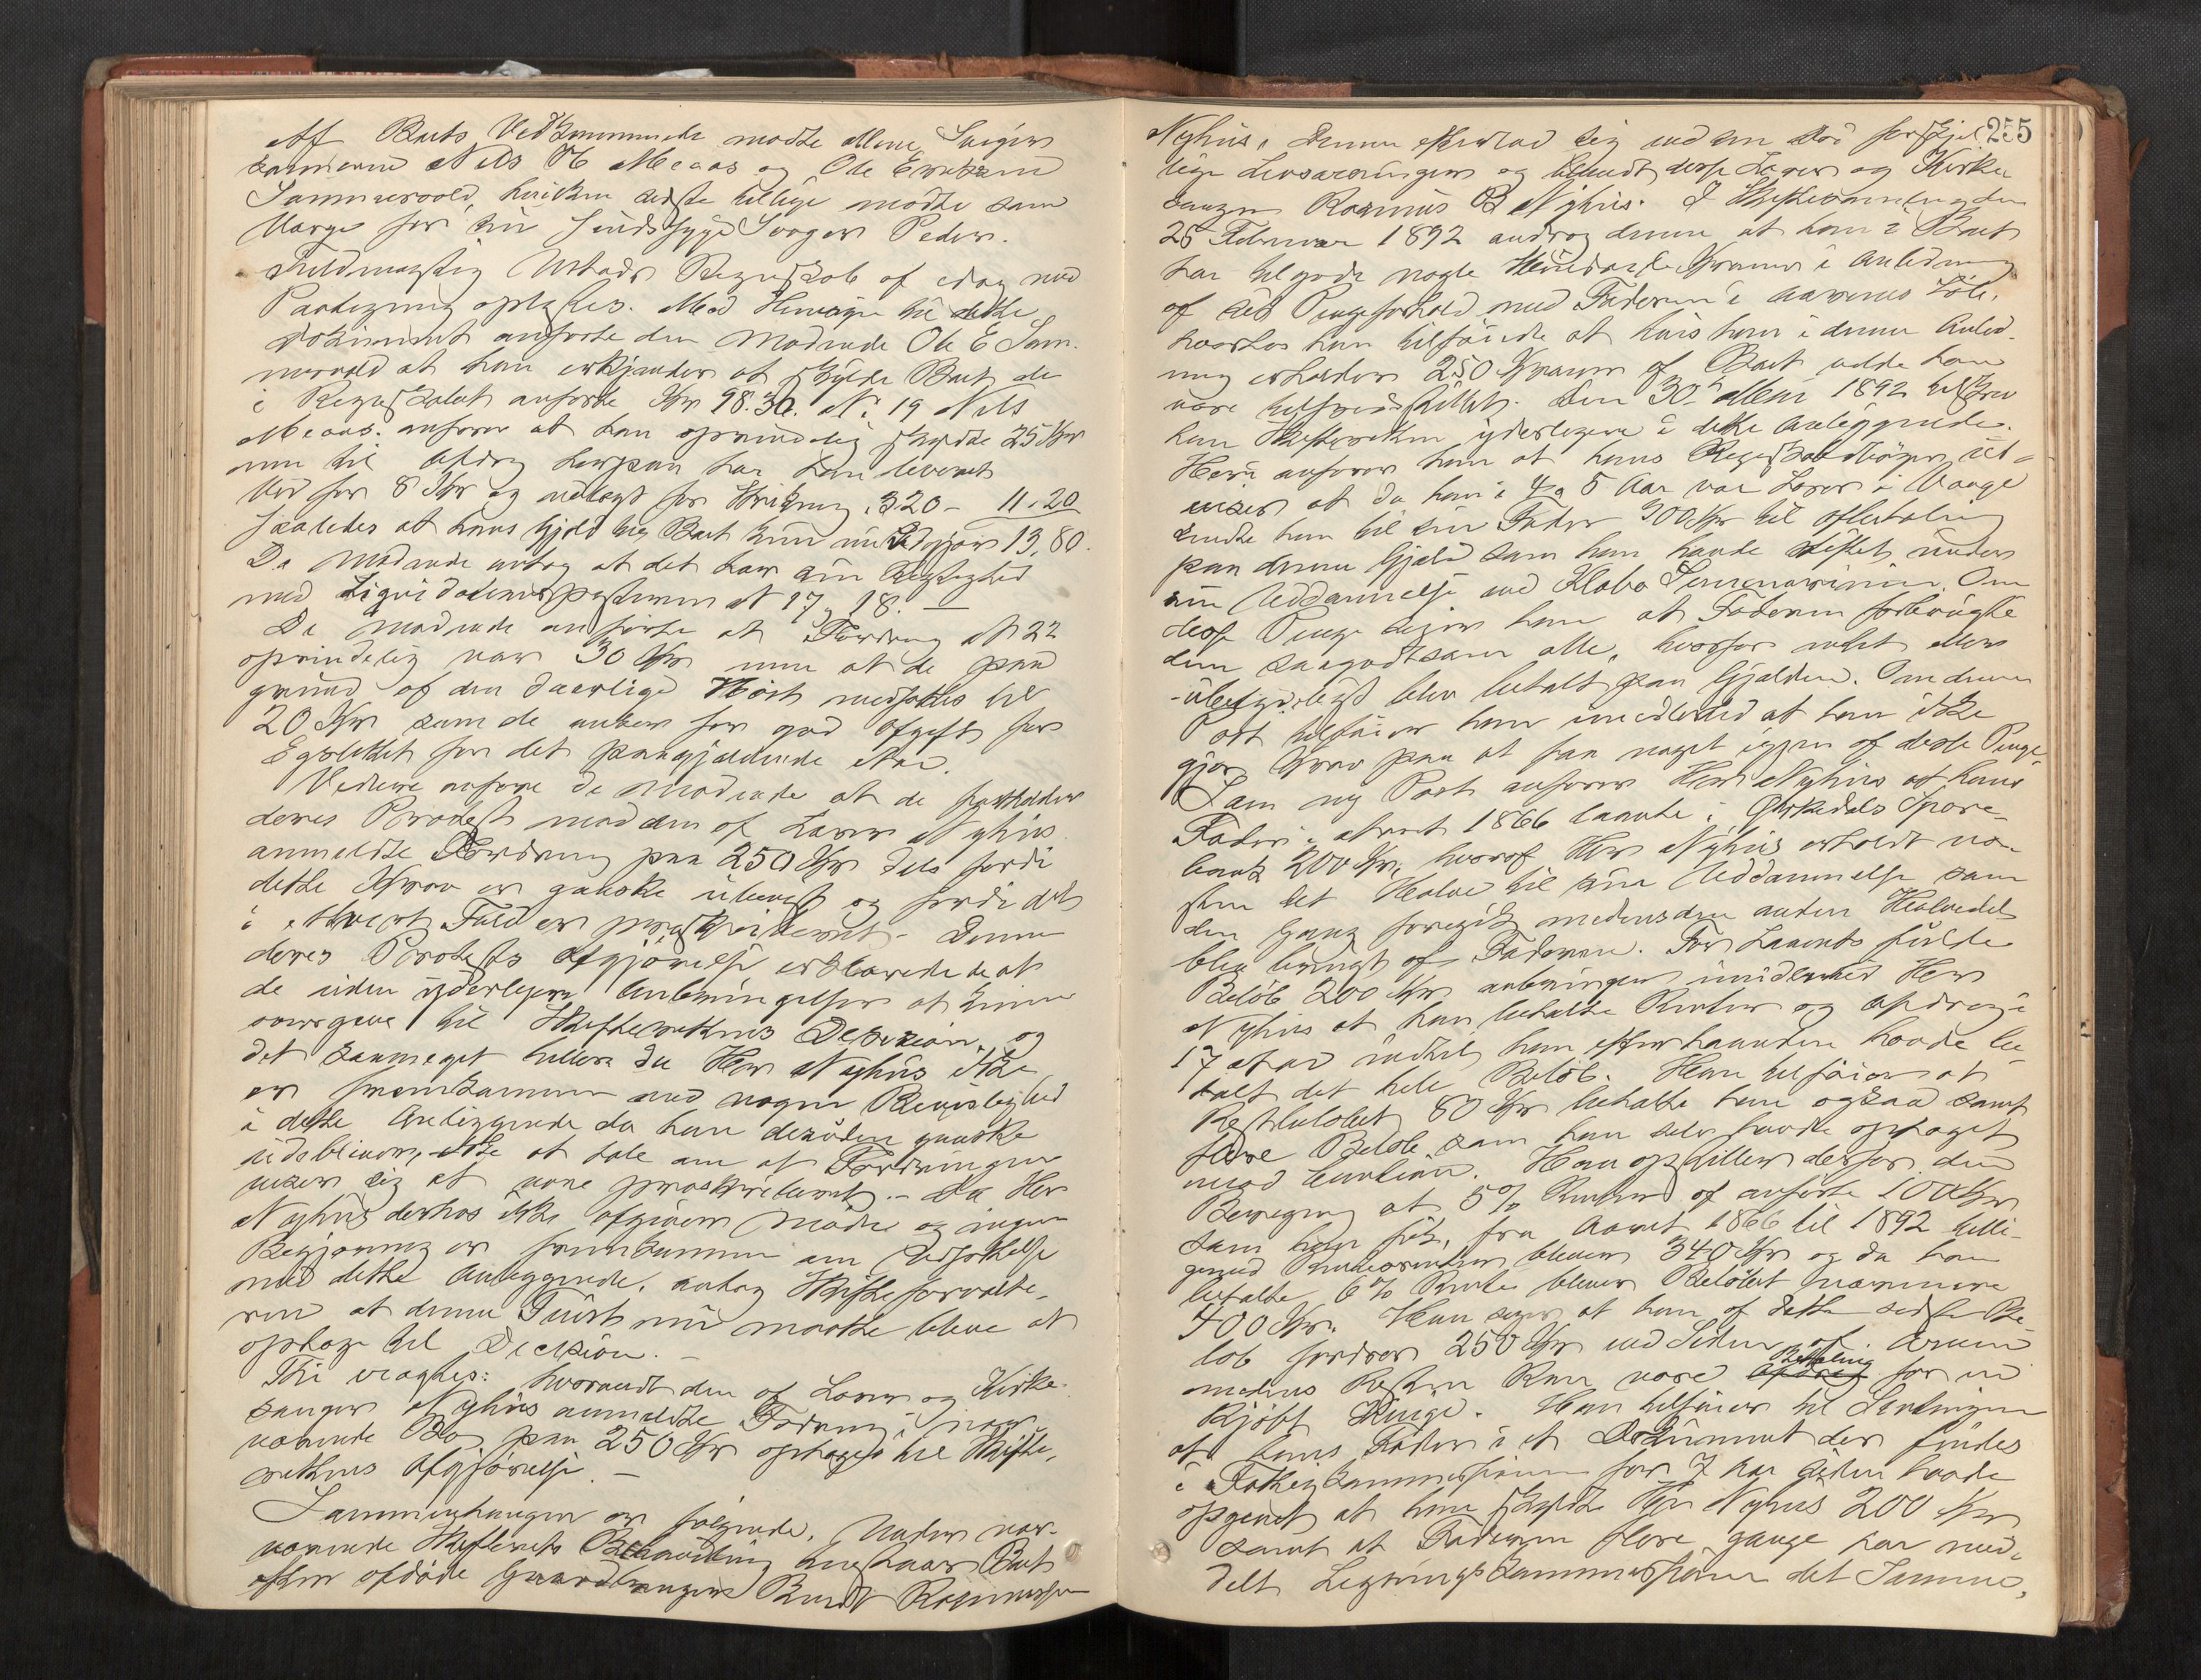 Af Boets Vedkommende mødte Svoger
sønnerne Nils O Meaas og Ole Eriksen
Sommervold, hvilken sidste tillige mødte som
Værge for sin sindssyge Svoger Peder.
Fuldmægtig Ustads Regnskab af idag med
Paategning oplæstes. Med Hensyn til dette
Dokument anførte den Mødende Ole E Som-
mervold at han erkjender at skylde Boet de
i Regnskabet anførte Kr 98.30. No 19 Nils
Meaas anfører at han oprindelig skyldte 25 Kr
men til Afdrag herpaa har han leveret
Ved for 8 Kr og udlagt for 3.20 – 11.20
saaledes at hans Gjæld til Boet kun udgjør 13,80.
De Mødende antog at det har sin Rigtighed
med Liqvidationsposterne No 17 og 18. —
De Mødende anførte at Fordring No 22
oprindelig var 30 Kr men at de paa
grund af den daarlige Høst nedsattes til
20 Kr som de anser for god Afgift for
Egslettet for det paagjældende Aar.
Videre anførte de Mødende at de fastholder
deres Protest mod den af Lærer Nyhus
anmeldte Fordring paa 250 Kr dels fordi
dette Krav er ganske ubevist og fordi det
i ethvert Fald er præskriberet. Denne
deres Protests Afgjørelse erklærede de at
de uden yderligere Anbringelser at kunne
overgive til Skifterettens Decision, og
det saameget hellere da Herr Nyhus ikke
er fremkommen med nogen Bevislighed
i dette Anliggende da han desuden ganske
udebliver, ikke at tale om at Fordringen
viser sig at være præskriberet. – Da Herr
Nyhus derhos ikke afgiver Møde og ingen
Begjæring er fremkommen om Udsættelse
med dette Anliggende, antog Skifteforvalte-
ren at denne Tvist nu maatte blive at
optage til Decision. –
Thi eragtes: hvorvidt den af Lærer og Kirke-
sanger Nyhus anmeldte Fordring i nær-
værende Bo paa 250 Kr optages til Skifte-
rettens Afgjørelse. –
Sammenhængen er følgende. Under nær-
værende Skifterets Behandling henstaar Boet
efter afdøde Gaardbruger Bendt Rasmussen
255
Nyhus. Denne efterlod sig ved sin Død forskjel-
lige Livsarvinger og blandt disse Lærer og Kirke
sanger Rasmus B Nyhus. I Skiftesamling den
25 Februar 1892 androg denne at han i Boet
har tilgode nogle Hundrede Kroner i Anledning
af sit Pengeforhold med Faderen i Aarenes Løb,
hvorhos han tilføiede at hvis han i denne Anled-
ning erholder 250 Kroner af Boet vilde han
være tilfredsstillet. Den 30 Mai 1892 tilskrev
han Skifteretten yderligere i dette Anliggende.
Heri anfører han at hans Regnskabsbøger ud-
viser at da han i 4 a 5 Aar var Lærer i Vaage
sendte han til sin Fader 300 Kr til Afbetaling
paa denne Gjæld som han havde stiftet under
sin Uddannelse ved Klæbo Seminarium. Om
disse Penge siger han at Faderen forbrugte
dem saagodtsom alle, hvorfor intet eller
ubetydeligt blev betalt paa Gjælden. Om denne
Post tilføier han imidlertid at han ikke
gjør Krav paa at faa noget igjen af disse Penge.
Som ny Post anfører Herr Nyhus at hans
Fader i Aaret 1866 laante i Orkedals Spare-
bank 200 Kr, hvoraf Herr Nyhus erholdt næ-
sten det Halve til sin Uddannelse som
den Gang foregik medens den anden Halvedel
blev brugt af Faderen. For Laanets fulde
Beløb 200 Kr anbringer imidlertid Herr
Nyhus at han betalte Renter og Afdrag i
17 Aar indtil han efterhaanden havde be-
talt det hele Beløb. Han tilføier at
Restbeløbet 80 Kr betalte han ogsaa samt
flere Beløb som han selv havde optaget
mod Kaution. Han opstiller derfor den
Beregning at 5% Renter af anførte 100 Kr
som han fik, fra Aaret 1866 til 1892 tilli-
gemed Rentesrenter bliver 340 Kr og da han
betalte 6% Rente bliver Beløbet nærmere
400 Kr. Han siger at han af dette sidste Be-
løb fordrer 250 Kr ved Siden af Arven
medens Resten kan være Betaling for en
Kjøbt Ting. Han tilføier til Slutningen
at hans Fader i et Dokument der findes
i Fattigkommissionen for 7 Aar siden havde
opgivet at han skyldte Herr Nyhus 200 Kr
samt at Faderen flere gange har med-
delt Ligningskommissionen det Samme,